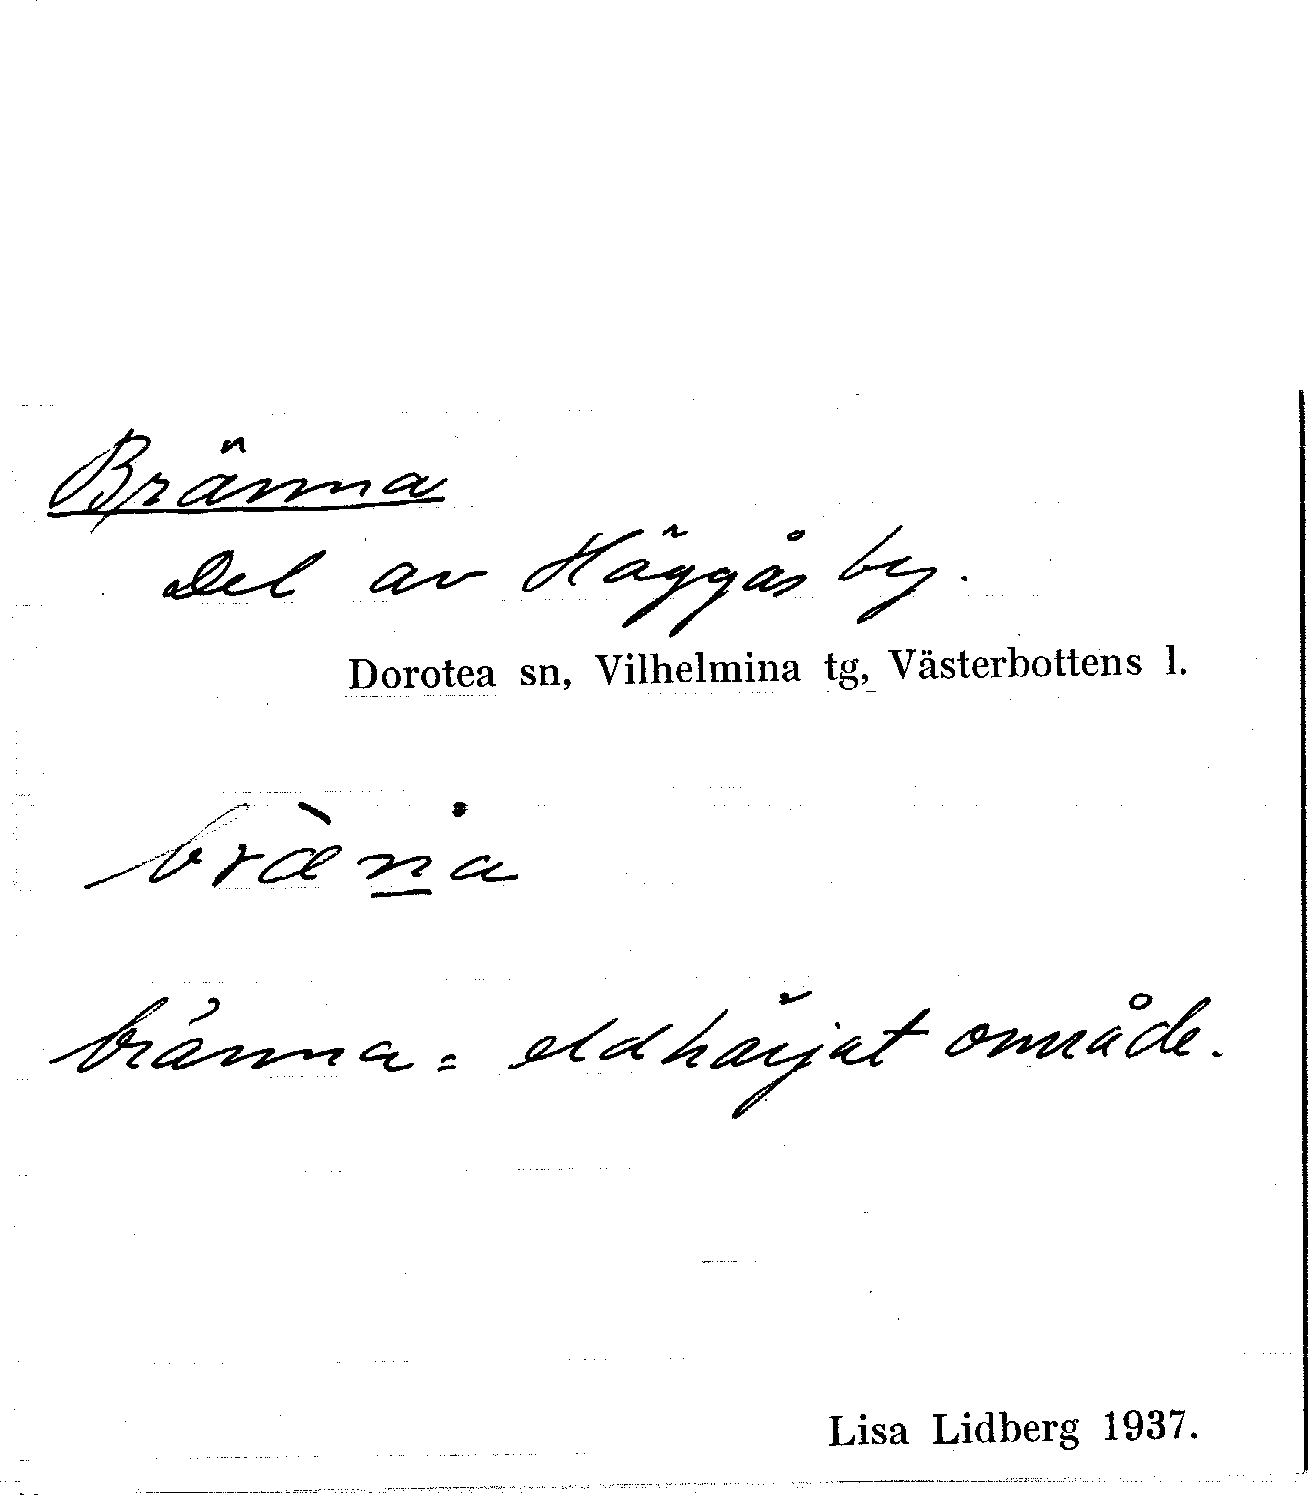 Bränna
Del av Häggås by.
Dorotea sn, Vilhelmina tg, Västerbottens l.
bræ̀n̲a
bränna = eldhärjat område.
Lisa Lidberg 1937.